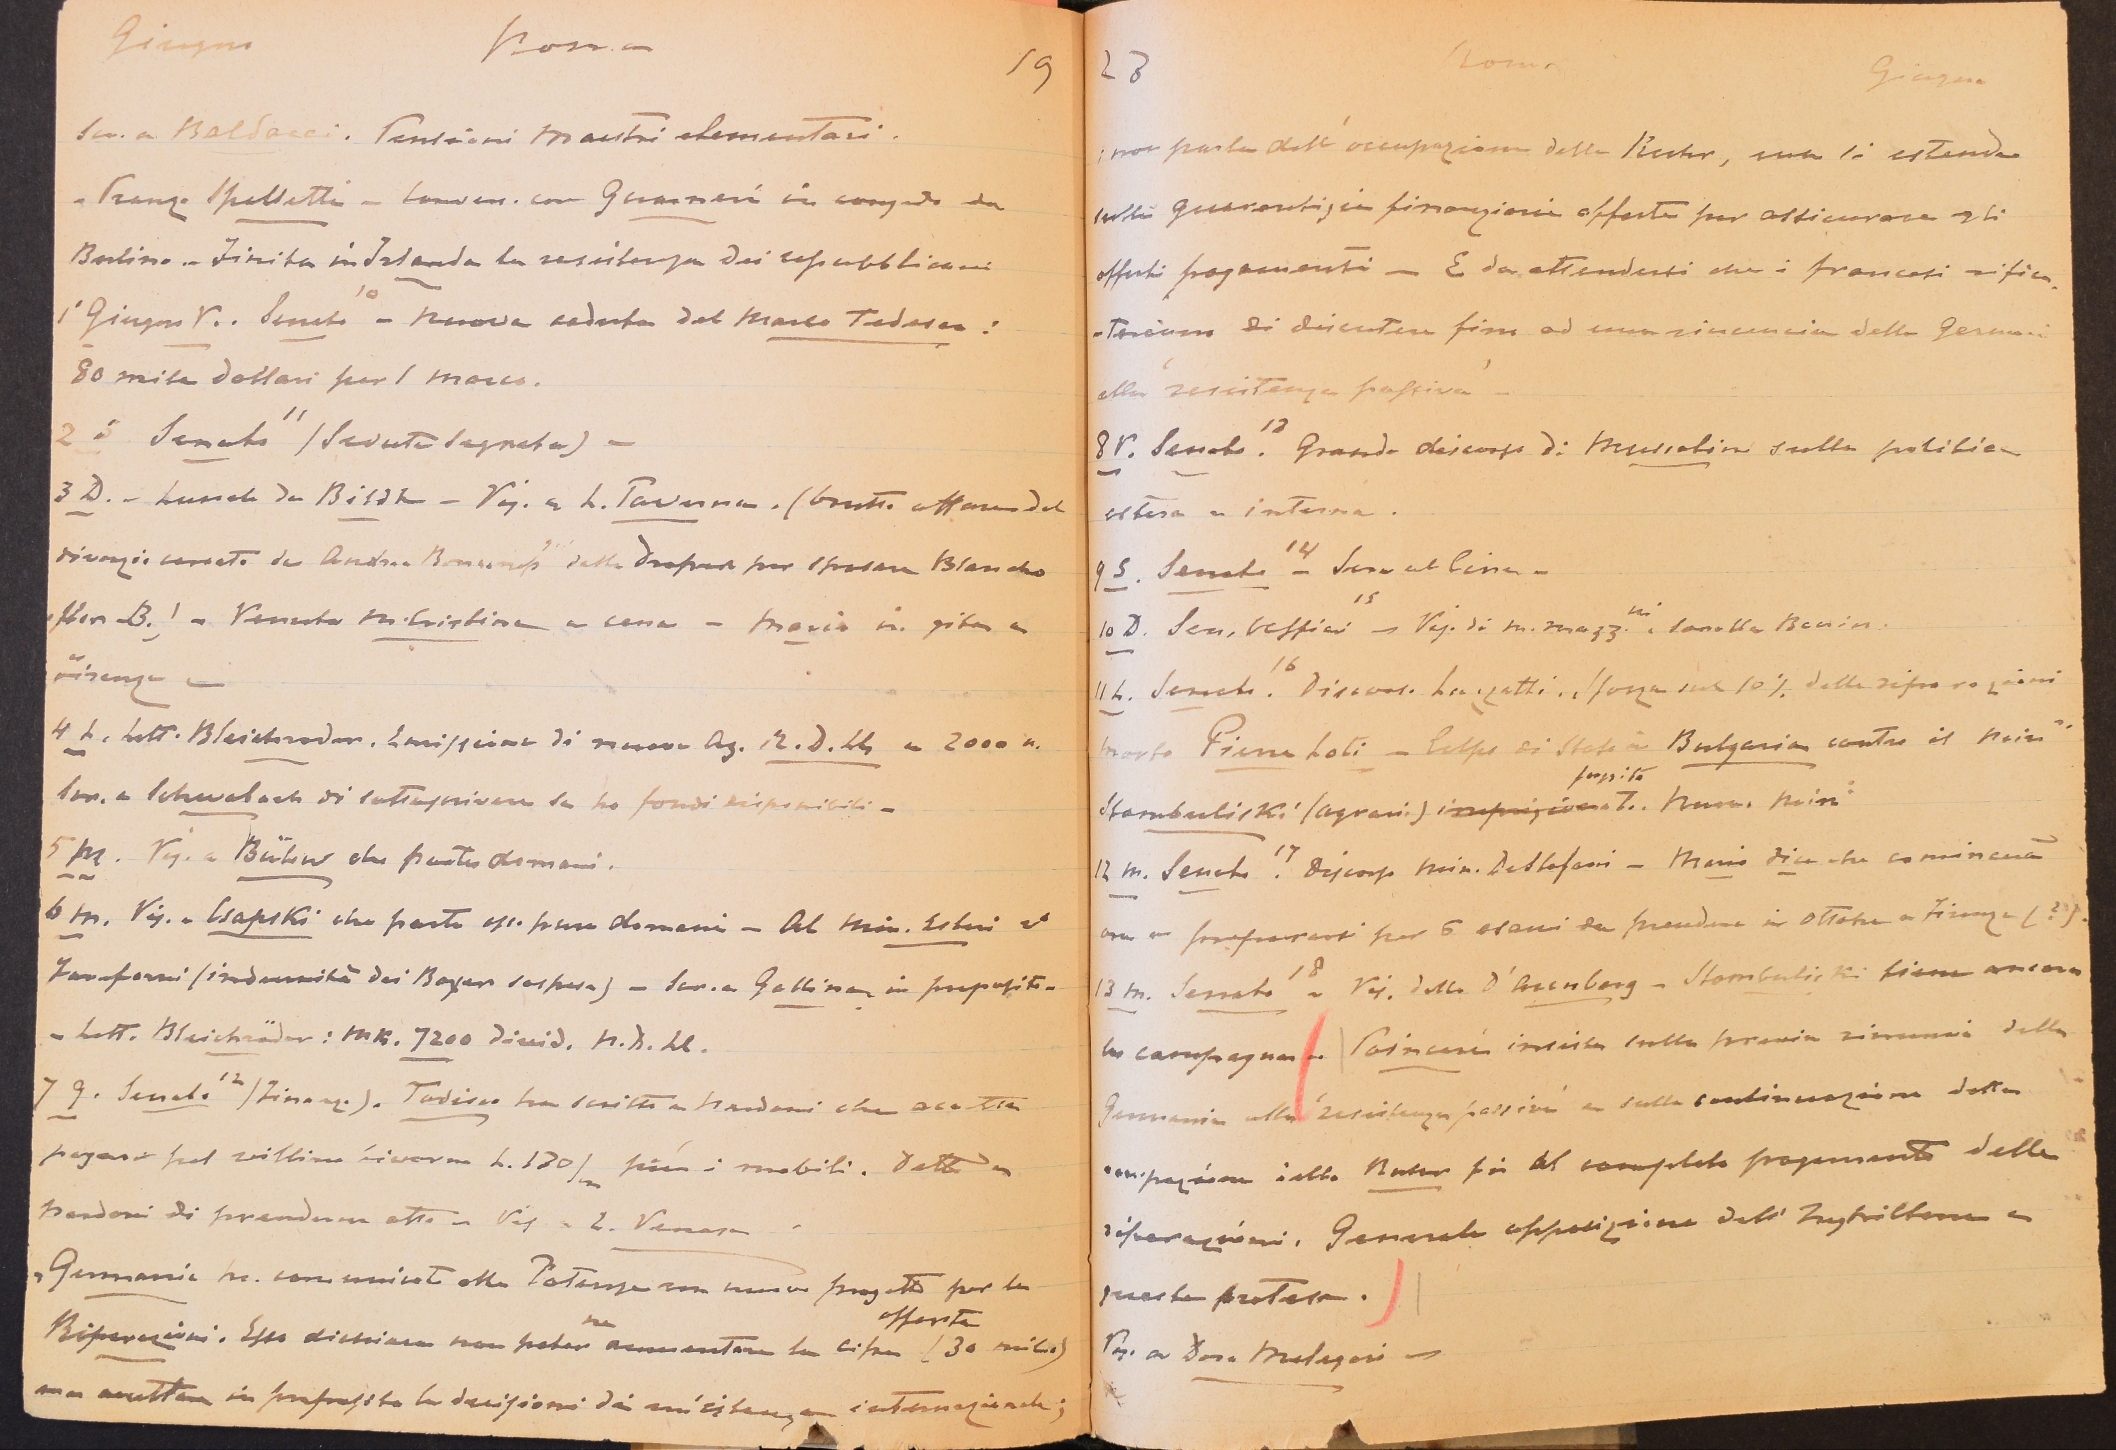 Giugno Roma 19
Scr. a Baldacci. Pensioni Maestri elementari.
- Pranzo Spelletti - conven. con Guarneri in congedo da
Berlino - Finita in Irlanda la resistenza dei repubblicani
1 Giugno V.. Senato 10 - Nuova caduta del Marco Tedesco:
80 mila dollari per 1 marco.
2 S Senato 11 (Seduta Segreta) -
3 D. - Lunch da Bildt - Vis. a L. Taverna. (brutto affare del
divorzio cercato da Andrea Boncomp.gni dalla Draper per sposare Blanche
B.! - Venuta M. Cristina a cena - Mario in gita a
4 L. Lett. Bleichroder. Emissione di nuove Az. N. D. Ll. a 2000 n.
Scr. a Schwabach di sottoscrivere se ho fondi disponibili -
5 M. Vis. a Bülow che parte domani.
6 M. Vis. a Csapski che parte egli pure domani - Al Min. Esteri da
(indennità dei Boxer sospesa) - Scr. a Gallina in proposito -
- Lett. Bleichröder: Mk. 7200 divid. N. D. Ll.
7 G. Senato 12 (Finanze). Todisco ha scritto a Nardoni che accetta
pagare pel villino Livorno L. 130/m più i mobili. Detto a
Nardoni di prendere atto - Vis. a L. Venosa -
- Germania ha comunicato alle Potenze un nuovo progetto per le
Riparazioni. Esso dichiara non poter ne aumentare la cifra offerta (30 mild.)
ma accettare in proposito la decisione di un'istanza internazionale;
23 Roma Giugno
non parla dell'occupazione della Ruhr, ma si estende
sulle guarentigie finanziarie offerte per assicurare gli
offerti pagamenti - E da attendersi che i francesi rifiu-
-teranno di discutere fino ad una rinuncia della Germania
alla "resistenza passiva" -
8 V. Senato 13. Grande discorso di Mussolini sulla politica
estera e interna.
9 S. Senato 14 - Sera al Cine -
10 D. Sen. Uffici 15 - Vis. di M. Mazz.ni e sorella
11 L. Senato 16. Discorso Luzzatti. (forza sul 10% delle riparazioni
Morto Pierre Loti - Colpo di Stato in Bulgaria contro il Min.ro
Stambuliski (agrario) imprigionato. fuggito Nuovo Min.ro
12 M. Senato 17. Discorso Min. De Stefani - Mario dice che comincerà
ora a prepararsi per 6 esami da prendere in Ottobre a Firenze (???).
13 M. Senato 18 - Vis. della D'Arenberg - Stambuliski tiene ancora
la campagna - Poincaré insiste sulla previa rinuncia della
Germania alla "resistenza passiva" e sulla continuazione della
occupazione della Ruhr fin al completo pagamento delle
riparazioni. Generale opposizione dell'Inghilterra a
queste pretese.
Vis. a Dora Melegari -